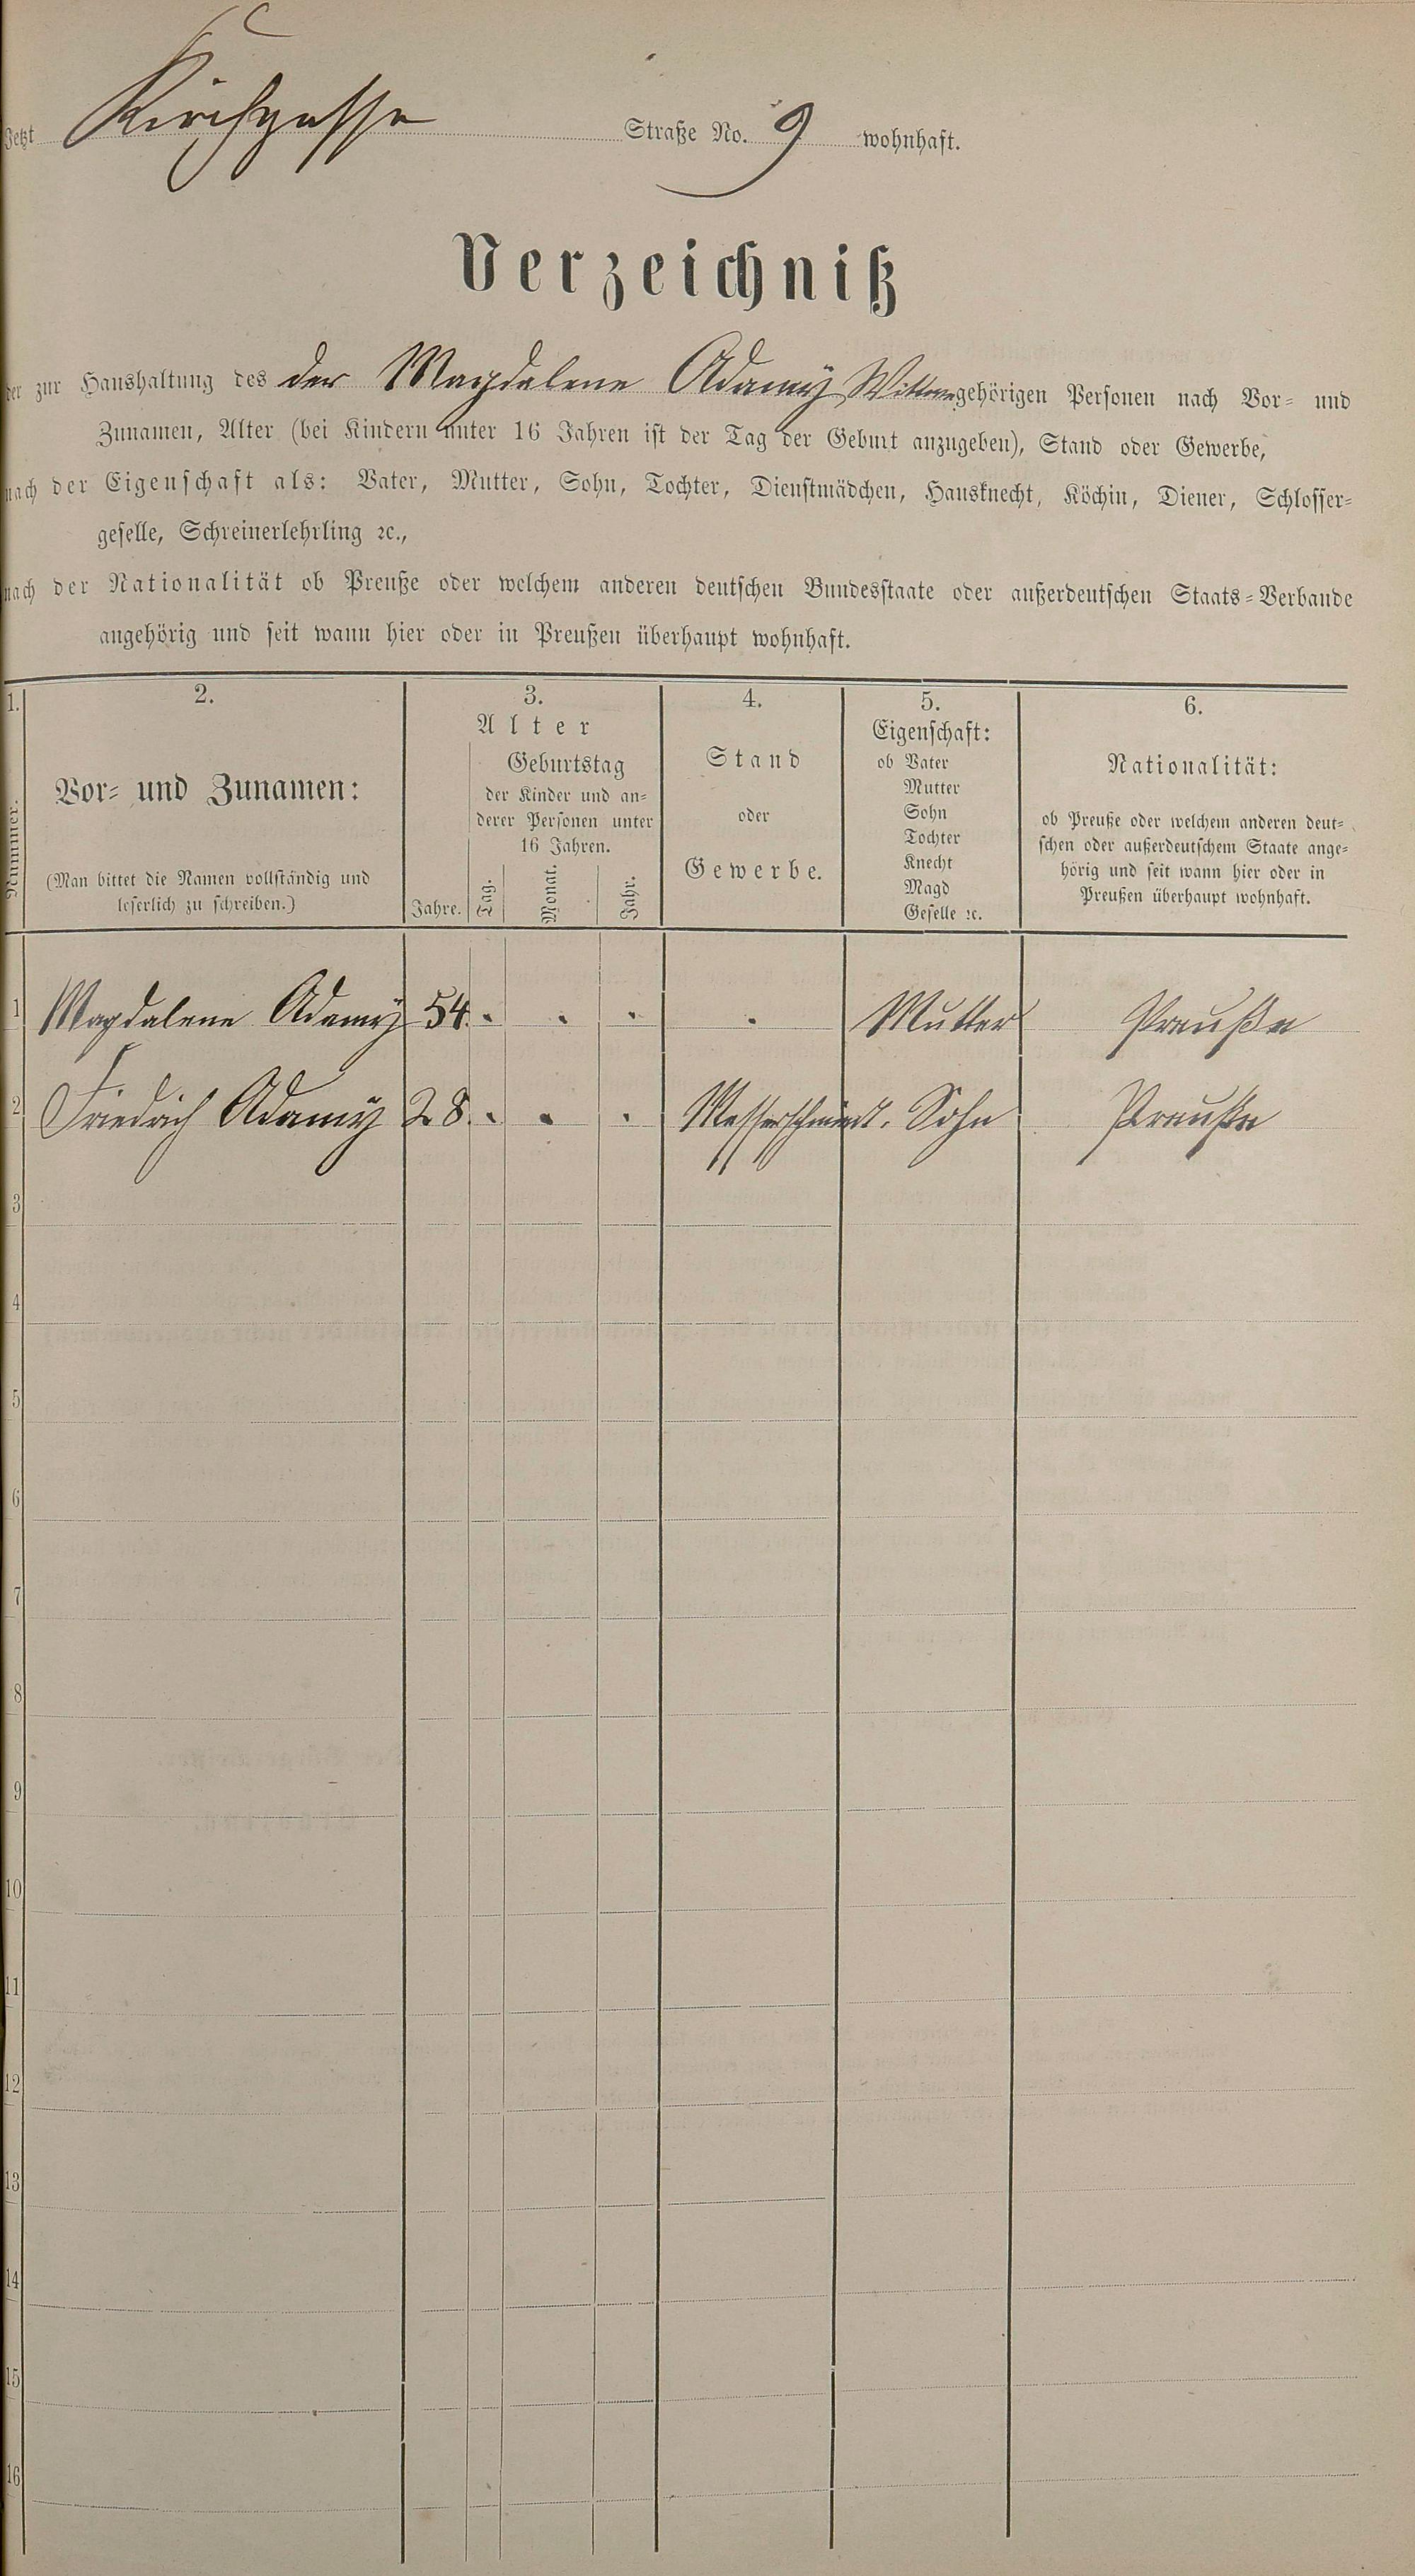 Jetzt Kirchgasse Straße No. 9 wohnhaft.
Verzeichniß
der zur Haushaltung des der Magdalene Adamÿ Wittwe gehörigen Personen nach Vor- und
Zunamen, Alter (bei Kindern unter 16 Jahren ist der Tag der Geburt anzugeben), Stand oder Gewerbe,
nach der Eigenschaft als: Vater, Mutter, Sohn, Tochter, Dienstmädchen, Hausknecht, Köchin, Diener, Schlosser-
geselle, Schreinerlehrling ꝛc.,
nach der Nationalität ob Preuße oder welchem anderen deutschen Bundesstaate oder außerdeutschen Staats-Verbande
angehörig und seit wann hier oder in Preußen überhaupt wohnhaft.
1.
Nummer.
2.
Vor- und Zunamen:
(Man bittet die Namen vollständig und
leserlich zu schreiben.)
3.
Alter
Jahre.
Geburtstag
der Kinder und an-
derer Personen unter
16 Jahren.
Tag.
Monat.
Jahr.
4.
Stand
oder
Gewerbe.
5.
Eigenschaft:
ob Vater
Mutter
Sohn
Tochter
Knecht
Magd
Geselle ꝛc.
6.
Nationalität:
ob Preuße oder welchem anderen deut-
schen oder außerdeutschem Staate ange-
hörig und seit wann hier oder in
Preußen überhaupt wohnhaft.
1 Magdalene Adamÿ 54. . . . . Mutter Preuße
2 Friedrich Adamÿ 28. . . . Messerschmidt. Sohn Preuße
3
4
5
6
7
8
9
10
11
12
13
14
15
16